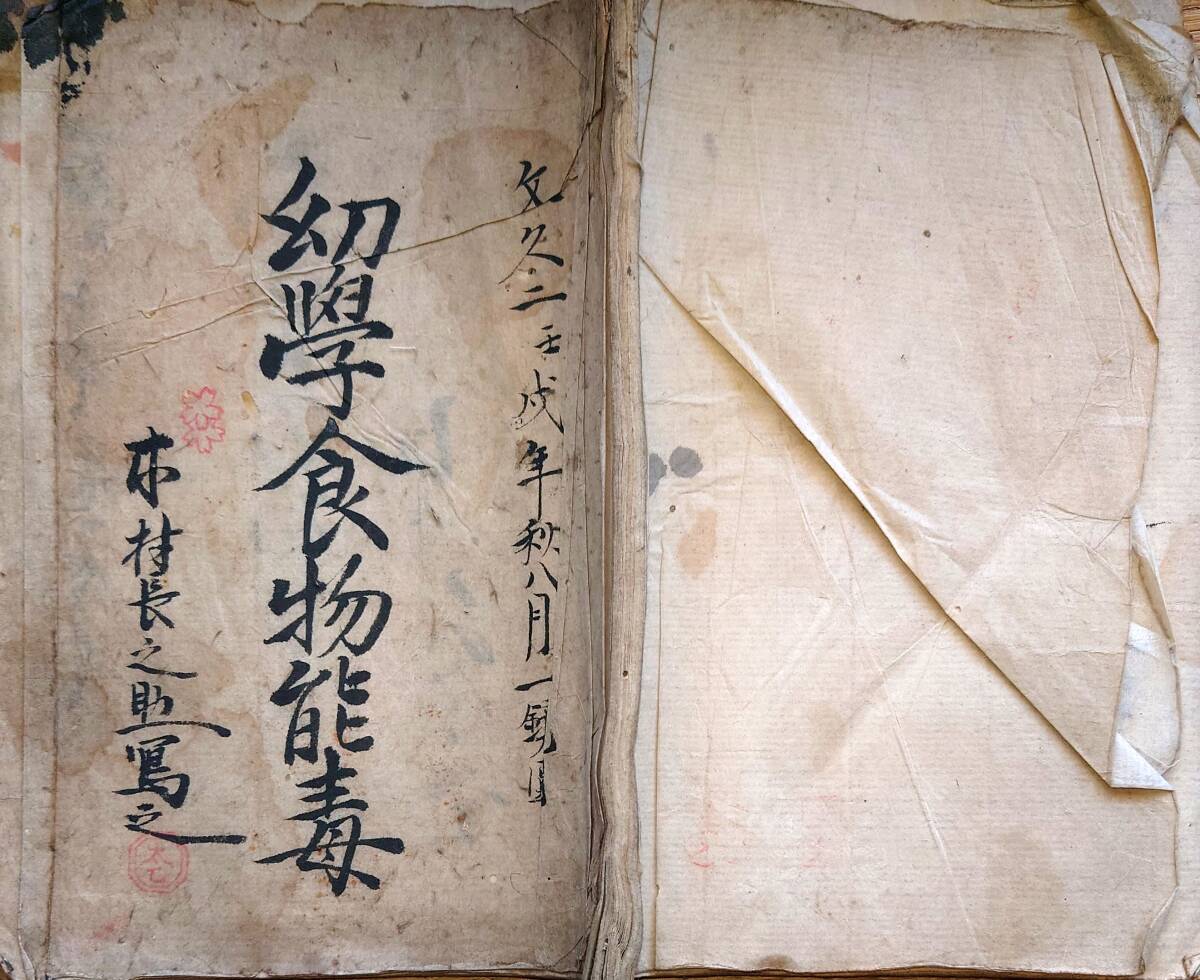 文久二壬戌年秋八月一鏡目
幼學食物能毒
木村長之助寫之